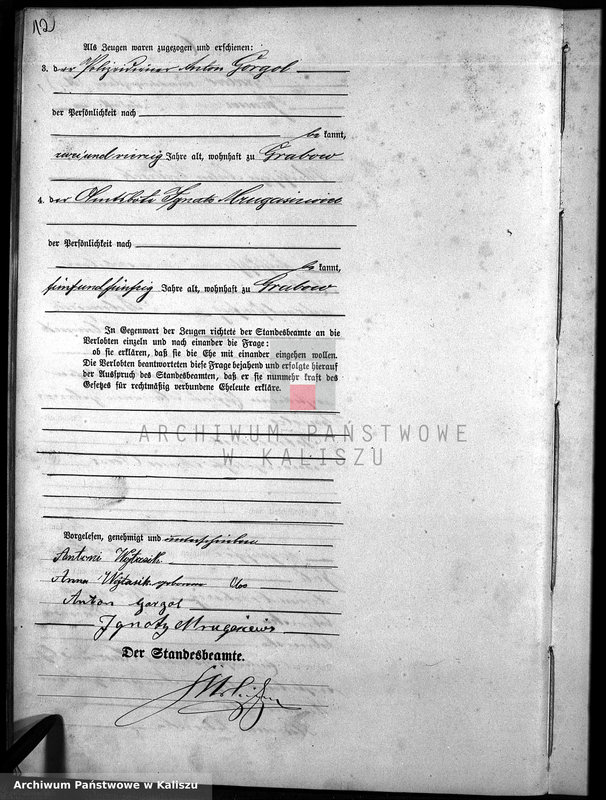 12
Als Zeugen waren zugezogen und erschienen:
3. der Polizeidiener Anton Gorgol
der Persönlichkeit nach
be kannt,
zweiundvierzig Jahre alt, wohnhaft zu Grabow
4. der Amtsbote Ignatz
der Persönlichkeit nach
be kannt,
fünfundfünfzig Jahre alt, wohnhaft zu Grabow
In Gegenwart der Zeugen richtete der Standesbeamte an die
Verlobten einzeln und nach einander die Frage:
ob sie erklären, daß sie die Ehe mit einander eingehen wollen.
Die Verlobten beantworteten diese Frage bejahend und erfolgte hierauf
der Ausspruch des Standesbeamten, daß er sie nunmehr kraft des
Gesetzes für rechtmäßig verbundene Eheleute erkläre.
ARCHIWUM PAŃSTWOWE
W KALISZU
Vorgelesen, genehmigt und unterschrieben
Antoni Wojtasik
Anna Wojtasik geborene
Anton Gorgol
Ignatz
Der Standesbeamte.
Archiwum Państwowe w Kaliszu